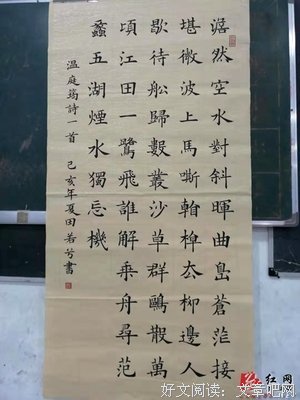 澹然空水對斜暉曲島蒼茫接
翠微波上馬嘶看棹去柳邊人
歇待船歸數叢沙草群鷗散萬
頃江田一鷺飛誰解乘舟尋范
蠡五湖煙水獨忘機
温庭筠詩一首 己亥年夏田若兮書
红网
好文阅读:文章吧网